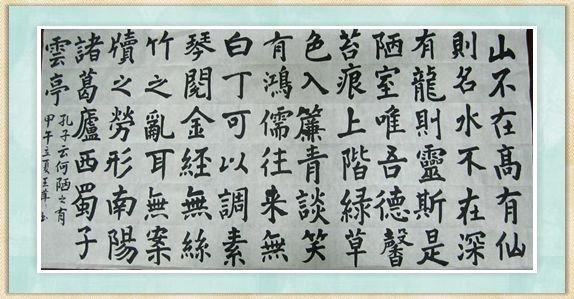 山不在高有仙
則名水不在深
有龍則靈斯是
陋室唯吾德馨
苔痕上階緑草
色入簾青談笑
有鴻儒往来無
白丁可以調素
琴閱金經無絲
竹之亂耳無案
牘之勞形南陽
諸葛廬西蜀子
雲亭
孔子云何陋之有
甲午立夏王